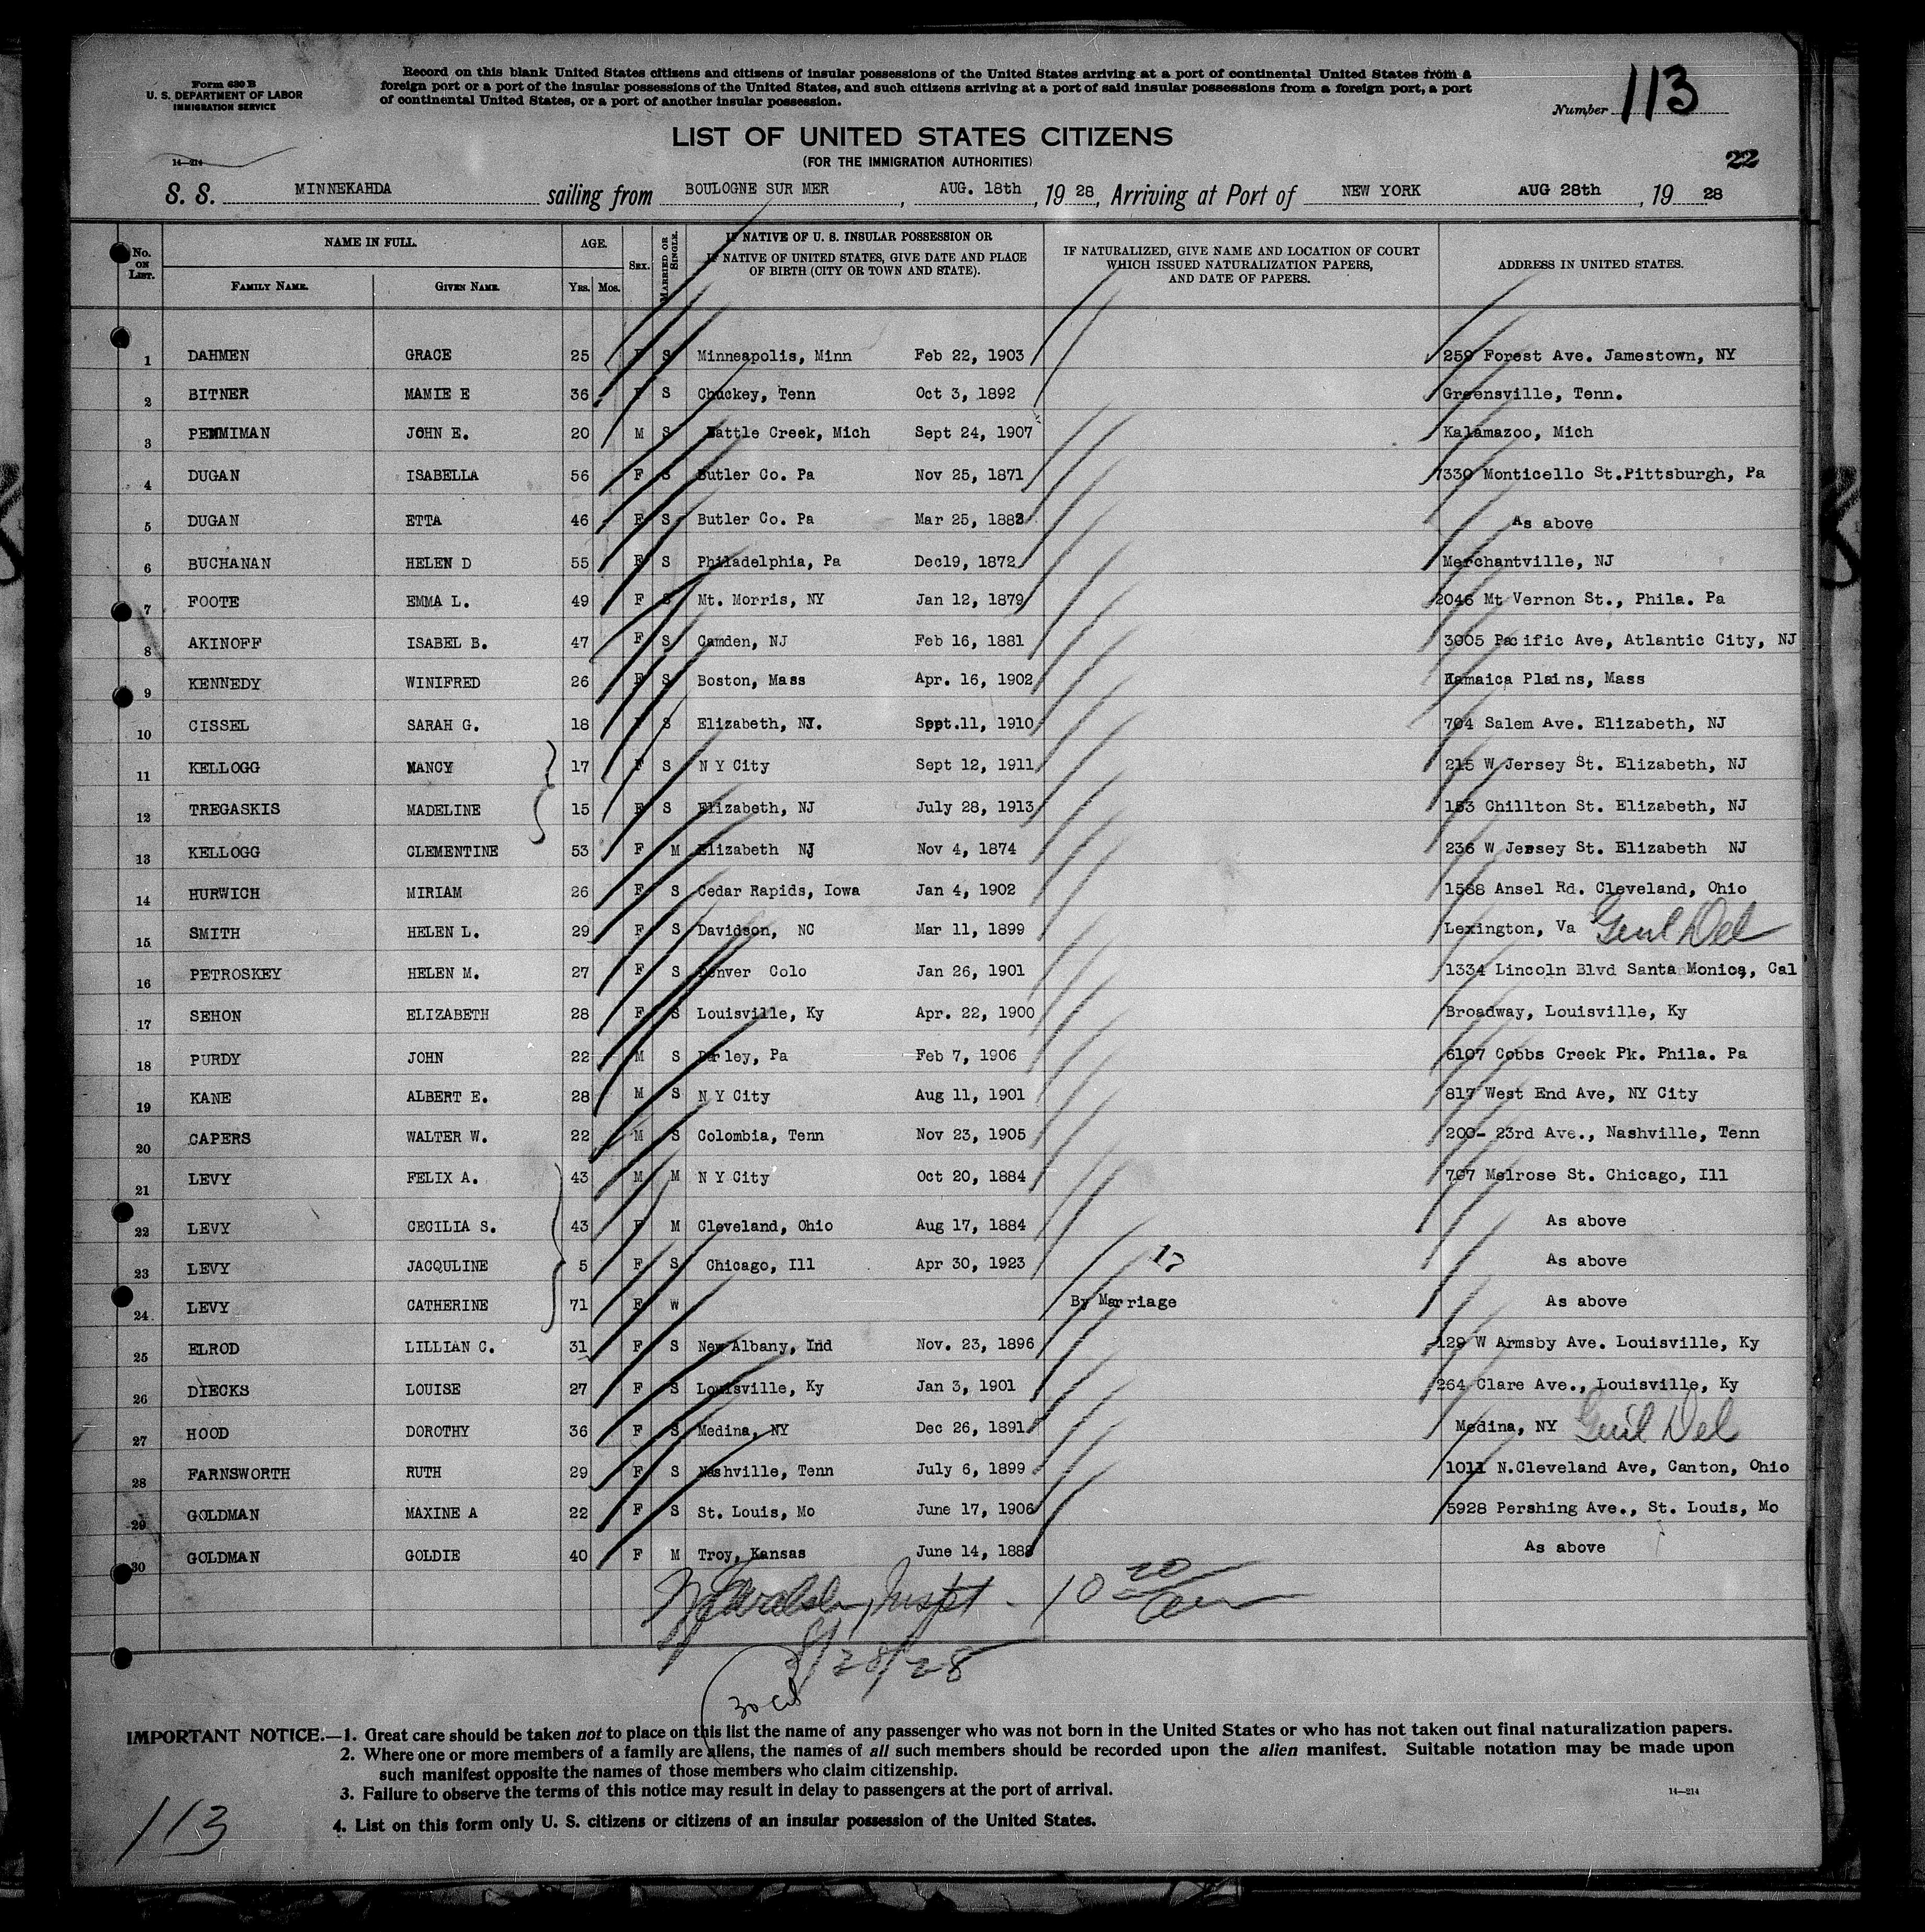 Form 630 B
U. S. DEPARTMENT OF LABOR
IMMIGRATION SERVICE
14—214
Record on this blank United States citizens and citizens of insular possessions of the United States arriving at a port of continental United States from a
foreign port or a port of the insular possessions of the United States, and such citizens arriving at a port of said insular possessions from a foreign port, a port
of continental United States, or a port of another insular possession.
Number 113
LIST OF UNITED STATES CITIZENS
(FOR THE IMMIGRATION AUTHORITIES)
22
S. S. MINNEKAHDA sailing from BOULOGNE SUR MER, AUG. 18th, 19 28, Arriving at Port of NEW YORK AUG 28th, 19 28
No. ON LIST. NAME IN FULL. AGE. SEX. MARRIED OR SINGLE. IF NATIVE OF U. S. INSULAR POSSESSION OR IF NATIVE OF UNITED STATES, GIVE DATE AND PLACE OF BIRTH (CITY OR TOWN AND STATE). IF NATURALIZED, GIVE NAME AND LOCATION OF COURT WHICH ISSUED NATURALIZATION PAPERS, AND DATE OF PAPERS. ADDRESS IN UNITED STATES.
FAMILY NAME. GIVEN NAME. YRS. MOS.
1 DAHMEN GRACE 25 F S Minneapolis, Minn Feb 22, 1903 259 Forest Ave. Jamestown, NY
2 BITNER MAMIE E 36 F S Chuckey, Tenn Oct 3, 1892 Greensville, Tenn.
3 PEMMIMAN JOHN E. 20 M S Battle Creek, Mich Sept 24, 1907 Kalamazoo, Mich
4 DUGAN ISABELLA 56 F S Butler Co. Pa Nov 25, 1871 7330 Monticello St.Pittsburgh, Pa
5 DUGAN ETTA 46 F S Butler Co. Pa Mar 25, 1882 As above
6 BUCHANAN HELEN D 55 F S Philadelphia, Pa Dec19, 1872 Merchantville, NJ
7 FOOTE EMMA L. 49 F S Mt. Morris, NY Jan 12, 1879 2046 Mt Vernon St., Phila. Pa
8 AKINOFF ISABEL B. 47 F S Camden, NJ Feb 16, 1881 3005 Pacific Ave, Atlantic City, NJ
9 KENNEDY WINIFRED 26 F S Boston, Mass Apr. 16, 1902 Jamaica Plains, Mass
10 CISSEL SARAH G. 18 F S Elizabeth, NJ. Sept.11, 1910 704 Salem Ave. Elizabeth, NJ
11 KELLOGG NANCY 17 F S N Y City Sept 12, 1911 215 W Jersey St. Elizabeth, NJ
12 TREGASKIS MADELINE 15 F S Elizabeth, NJ July 28, 1913 153 Chillton St. Elizabeth, NJ
13 KELLOGG CLEMENTINE 53 F M Elizabeth NJ Nov 4, 1874 236 W Jersey St. Elizabeth NJ
14 HURWICH MIRIAM 26 F S Cedar Rapids, Iowa Jan 4, 1902 1588 Ansel Rd. Cleveland, Ohio
15 SMITH HELEN L. 29 F S Davidson, NC Mar 11, 1899 Lexington, Va Genl Del
16 PETROSKEY HELEN M. 27 F S Denver Colo Jan 26, 1901 1334 Lincoln Blvd Santa Monica, Cal
17 SEHON ELIZABETH 28 F S Louisville, Ky Apr. 22, 1900 Broadway, Louisville, Ky
18 PURDY JOHN 22 M S Darley, Pa Feb 7, 1906 6107 Cobbs Creek Pk. Phila. Pa
19 KANE ALBERT E. 28 M S N Y City Aug 11, 1901 817 West End Ave, NY City
20 CAPERS WALTER W. 22 M S Colombia, Tenn Nov 23, 1905 200- 23rd Ave., Nashville, Tenn
21 LEVY FELIX A. 43 M M N Y City Oct 20, 1884 707 Melrose St. Chicago, Ill
22 LEVY CECILIA S. 43 F M Cleveland, Ohio Aug 17, 1884 As above
23 LEVY JACQULINE 5 F S Chicago, Ill Apr 30, 1923 As above
24 LEVY CATHERINE 71 F W By Marriage As above
25 ELROD LILLIAN C. 31 F S New Albany, Ind Nov. 23, 1896 129 W Armsby Ave. Louisville, Ky
26 DIECKS LOUISE 27 F S Louisville, Ky Jan 3, 1901 264 Clare Ave., Louisville, Ky
27 HOOD DOROTHY 36 F S Medina, NY Dec 26, 1891 Medina, NY Genl Del
28 FARNSWORTH RUTH 29 F S Nashville, Tenn July 6, 1899 1011 N.Cleveland Ave, Canton, Ohio
29 GOLDMAN MAXINE A 22 F S St. Louis, Mo June 17, 1906 5928 Pershing Ave., St. Louis, Mo
30 GOLDMAN GOLDIE 40 F M Troy, Kansas June 14, 1888 As above
Inspt. 10 20
8/28/28
IMPORTANT NOTICE.—1. Great care should be taken not to place on this list the name of any passenger who was not born in the United States or who has not taken out final naturalization papers.
2. Where one or more members of a family are aliens, the names of all such members should be recorded upon the alien manifest. Suitable notation may be made upon
such manifest opposite the names of those members who claim citizenship.
3. Failure to observe the terms of this notice may result in delay to passengers at the port of arrival.
14—214
4. List on this form only U. S. citizens or citizens of an insular possession of the United States.
113